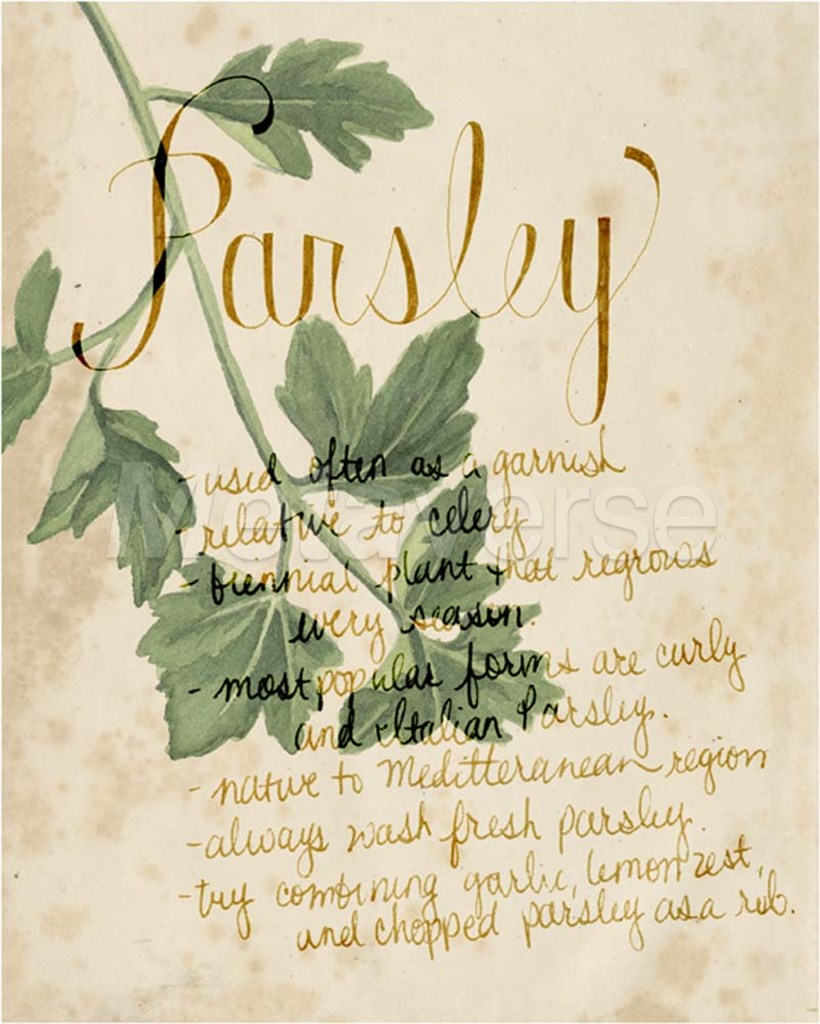 Parsley
- used often as a garnish
- relative to celery
- biennial plant that regrows
every season.
- most popular forms are curly
and Italian Parsley.
- native to Meditteranean region
- always wash fresh parsley.
- try combining garlic, lemon zest,
and chopped parsley as a rub.
Metaverse